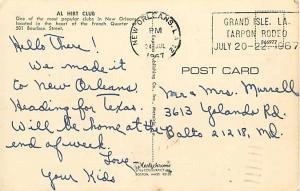 AL HIRT CLUB
One of the most popular clubs in New Orleans,
located in the heart of the French Quarter
501 Bourbon Street.
Hello There!
We made it
to New Orleans.
Heading for Texas.
Will be home at the
end of week.
Love
Your Kids
NEW ORLEANS, LA
PM
24 JUL
1967
GRAND ISLE, LA.
TARPON RODEO
JULY 20-22-1967
POST CARD
Mr & Mrs. Murrell
3613 Yolando Rd.
Balto 21218, Md.